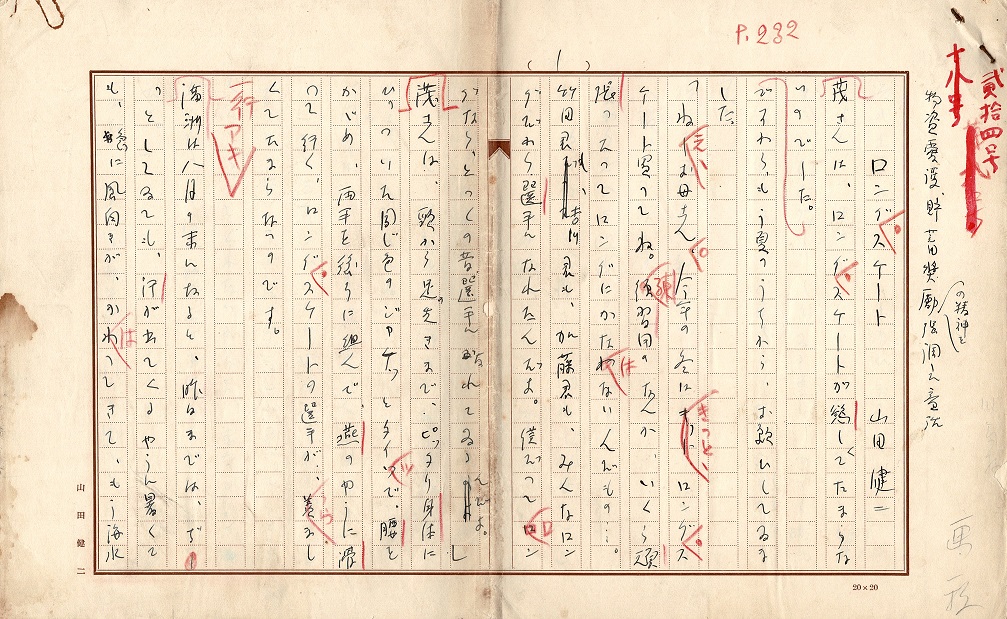 P.232
(1)
貳拾四号
十八号
物資愛護、野
の精神を
ロングスケート 山田健二
茂さんは、ロングスケートが慾しくてたまらな
いのでした。
ですからもう夏のうちから、お願ひしてゐま
した。
「ねえ、お母さん、今年の冬はきっと、ロングス
ケート買ってね。練習用のなんか、いくら頑
張ったってロングにかなはないんだもの…。
竹田君も、吉川君も、加藤君も、みんなロン
グだから選手になれたんだよ。僕だってロン
グなら、とっくの昔選手になれてゐるんだよ。」
茂さんは、頭から足の先きまで、ピッタリ身体に
ひっついた同じ色のジャケツとタイツで、腰を
かがめ、両手を後ろに組んで、燕のやうに滑
って行く、ロングスケートの選手が、羨まし
くてたまらないのです。
一行アキ
満洲は八月の末になると、昨日までは、ぢ
っとしてゐても、汗が出てくるやうに暑くて
も、急に風向きが、かはってきて、もう海水
山田健二
20×20